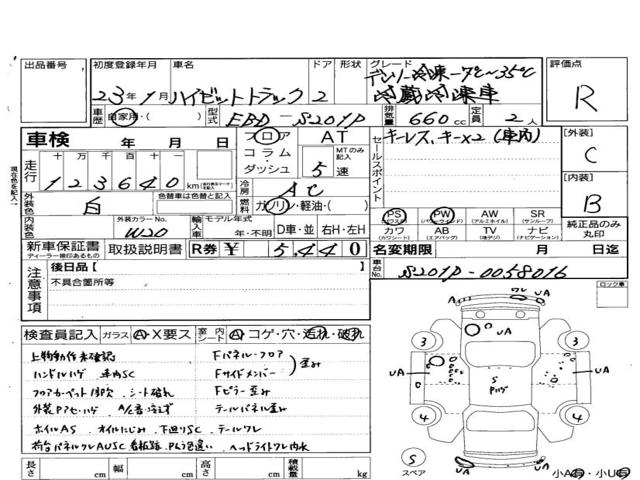 出品番号 初度登録年月 車名 ドア 形状 グレード 評価点
23年1月 ハイゼットトラック 2 デンソー冷凍-7℃~35℃
冷蔵冷凍車 R
車歴 自家用・( ) 型式 EBD-S201P 排気量 660cc 定員 2人
車検 年 月 日 フロア AT
コラム MTのみ記入
ダッシュ 5速
走行 十 万 千 百 十 一
123640 km
冷房 AC
燃料 ガソリン・軽油・( )
セールスポイント キーレス、キー×2(車内)
[外装] C
[内装] B
外装色 白 色替車は色替と記入
内装色 外装カラーNo. W20 輸入車 モデル年式 年・不明 D車・並 右H・左H
PS PW AW SR
(パワステ) (パワーウィンド) (アルミホイル) (サンルーフ)
カワ AB TV ナビ
(カワシート) (エアバッグ) (地デジ) (ナビゲーション)
純正品のみ丸印
新車保証書 取扱説明書 R券 ¥ 5,440
ディーラー様印あるもの
名変期限 月 日迄
車台No. S201P-0058016
現在色を記入
注意事項 後日品[ ]
不具合箇所等
ロック車
検査員記入 ガラス A・X要ス 室内シート A・コゲ・穴・汚れ・破れ
上物動作未確認 Fパネル・フロア
ハンドルハゲ 車内SC Fサイドメンバー 歪み
フロアカーペット シート破れ Fピラー歪み
外装Pアセ・ハゲ テールパネル歪み
ホイルAS オイルにじみ 下廻りSC テールワレ
荷台パネルワレAUSC 看板跡 Pムラ色違い ヘッドライトワレ内水
A ワレ UA
UA
3 3
UA UA
S
Pハゲ
4 4
S
スペア
UA A
小A有・小U有
長さ cm 幅 cm 高さ cm 積載量 kg